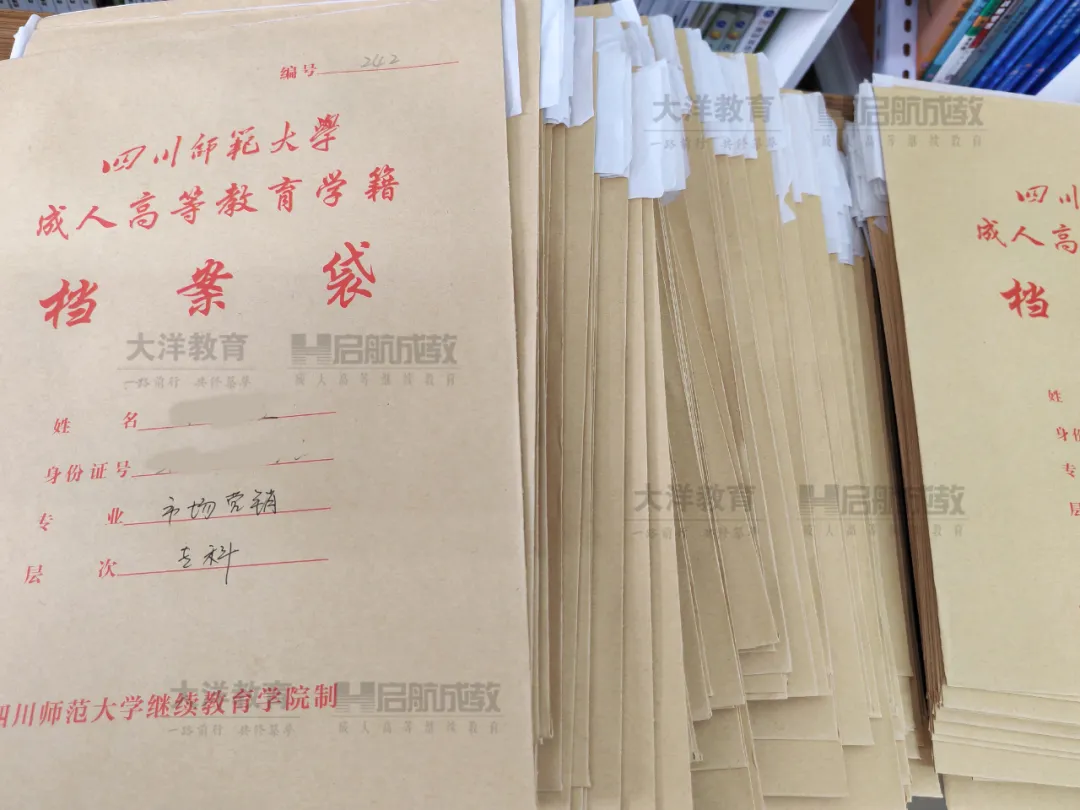 编号 242
四川师范大學
成人高等教育学籍
档案袋
姓名
身份证号
专业 市场营销
层次 专科
四川师范大学继续教育学院制
大洋教育
一路前行 共修慕学
启航成教
成人高等继续教育
大洋教育
启航成教
成人高等继续教育
大洋教育
启航成教
成人高等继续教育
大洋教育
启航成教
成人高等继续教育
四川
成人高
档
姓
身份
专
层